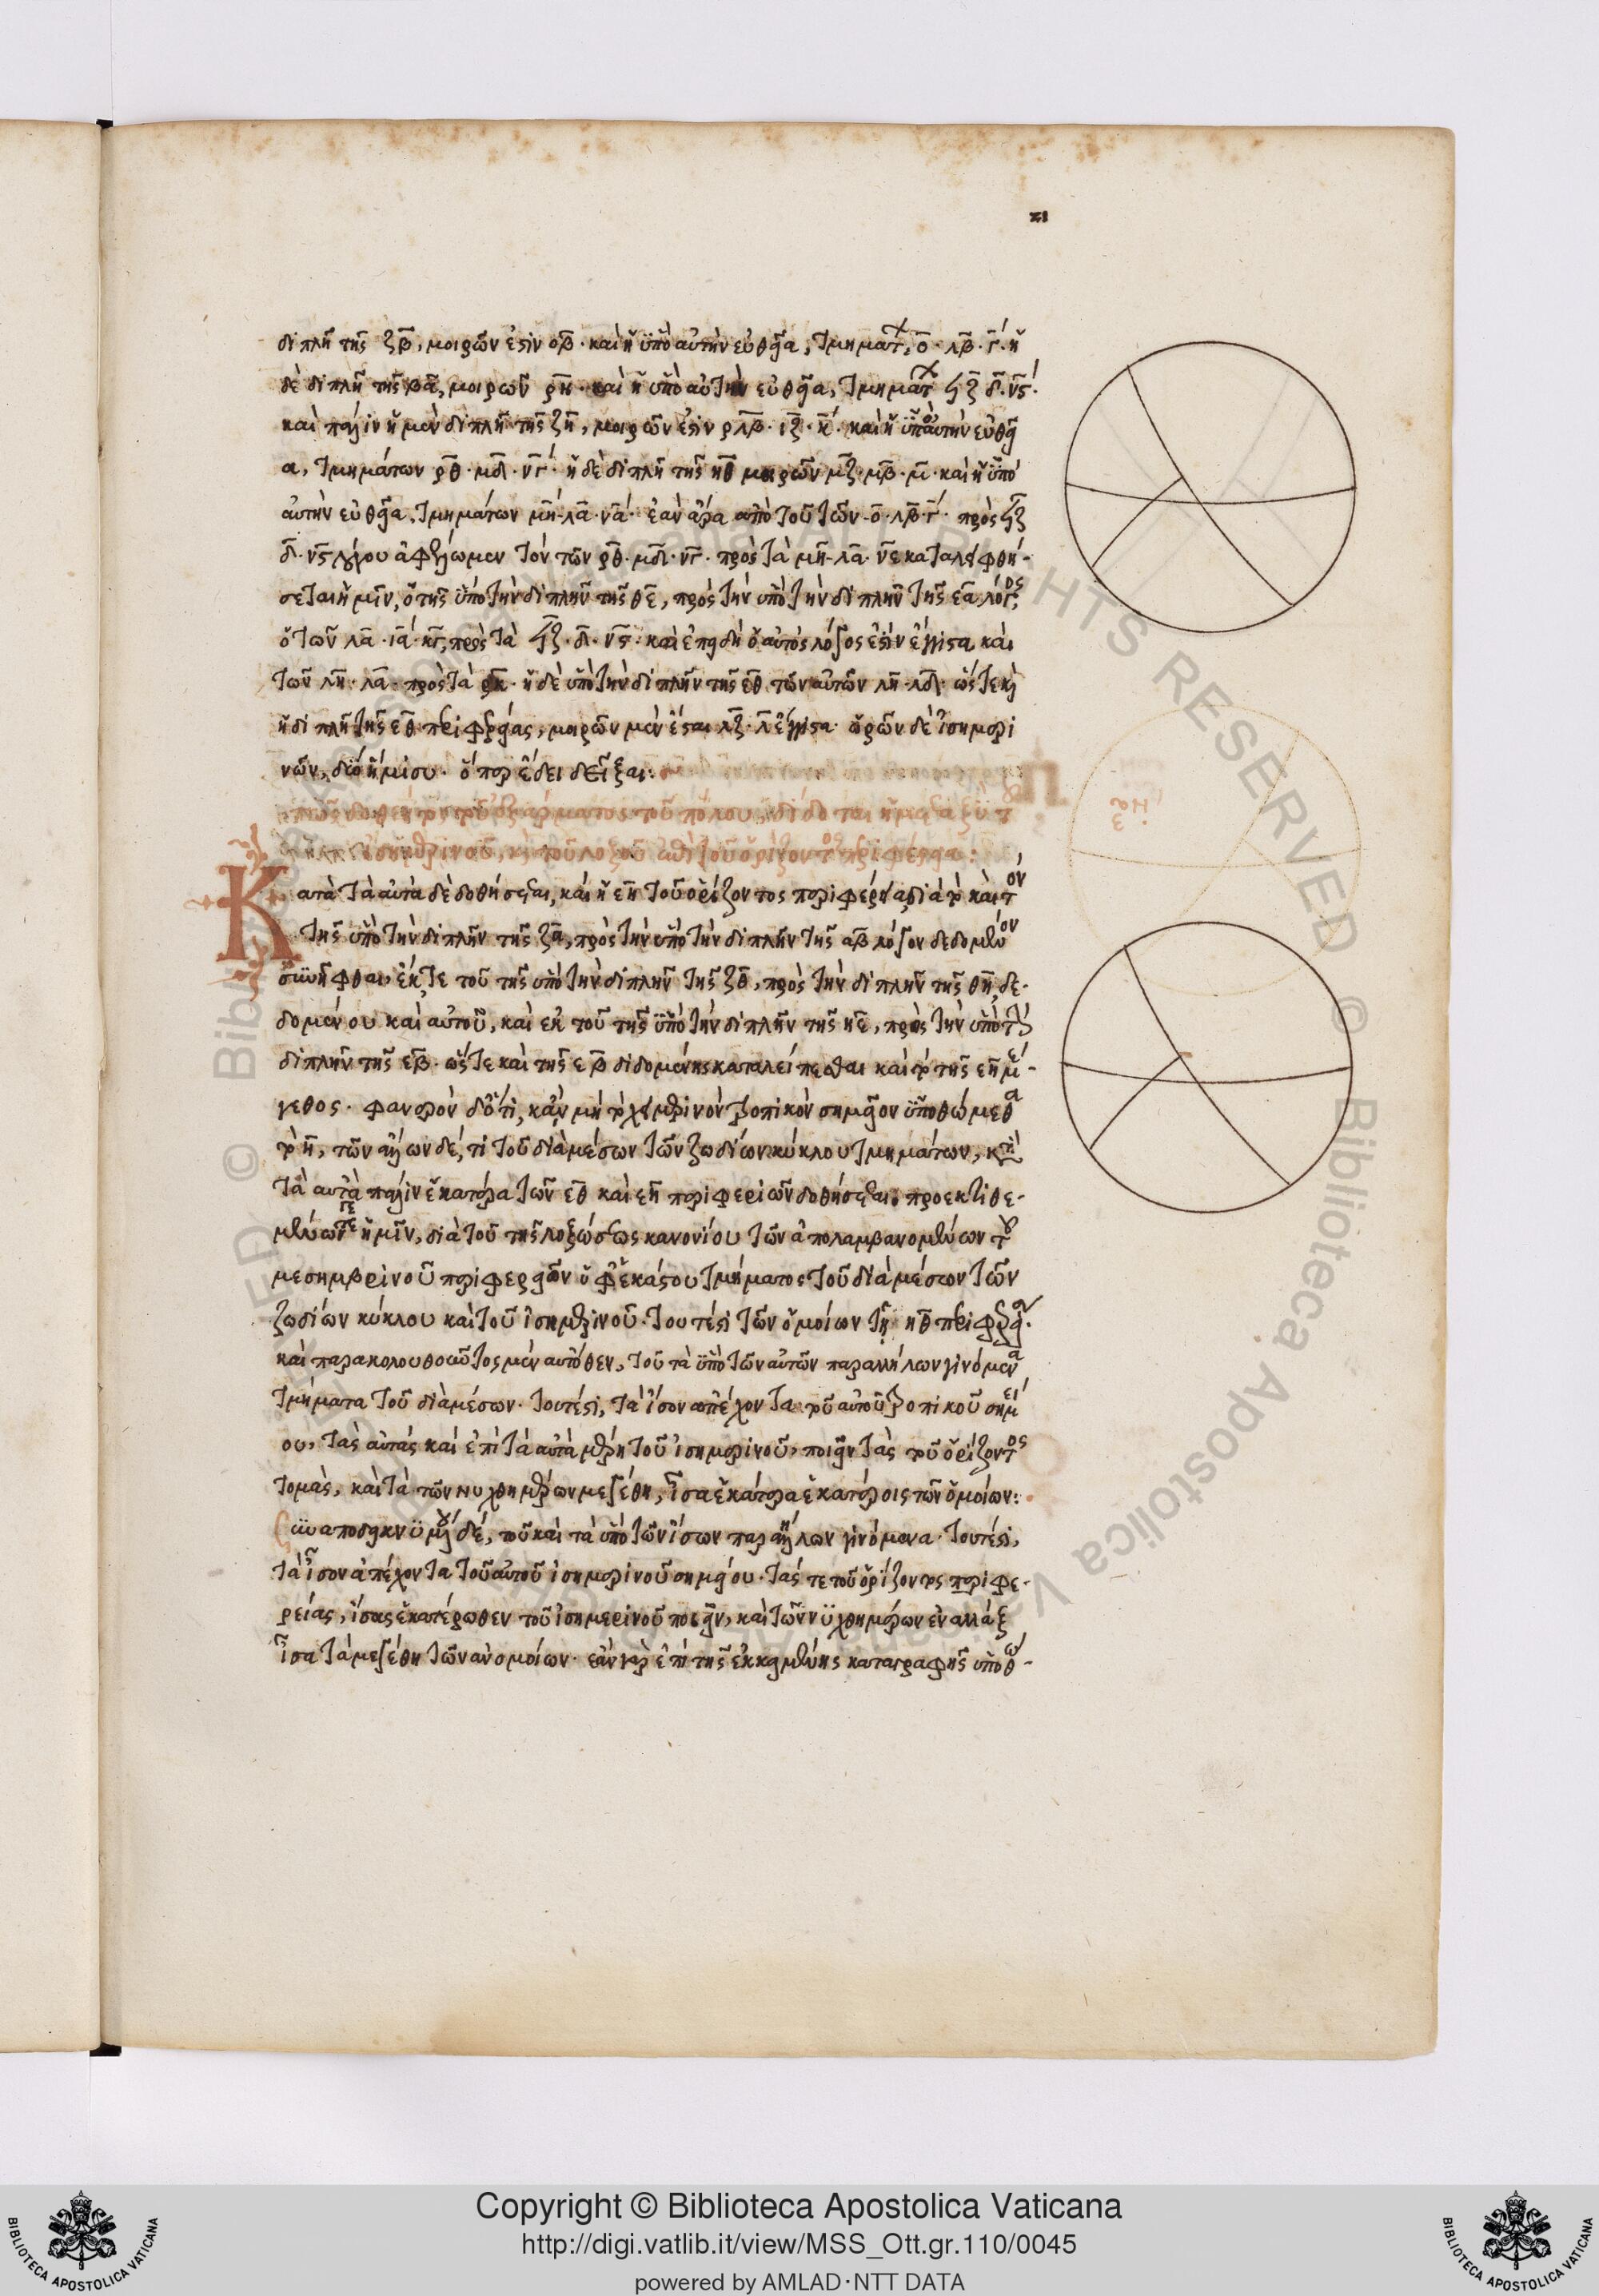 21
διπλῆ τῆς ζβ, μοιρῶν ἐστὶν οβ · καὶ ἡ ὑπὸ αὐτὴν εὐθεῖα, τμημάτ, ο · λβ · γ · ἡ
δὲ διπλῆ τῆς βα, μοιρῶν ρη · καὶ ἡ ὑπὸ αὐτὴν εὐθεῖα, τμημάτ ϟζ δ · νϛ ·
καὶ πάλιν ἡ μὲν διπλῆ τῆς ζη, μοιρῶν ἐστὶν ρλβ · ιζ · κ · καὶ ἡ ὑπ αὐτὴν εὐθεῖ
α, τμημάτων ρθ · μδ · νγ · ἡ δὲ διπλῆ τῆς ηθ μοιρῶν μζ · μβ · μ · καὶ ἡ ὑπὸ
αὐτὴν εὐθεῖα, τμημάτων μη · λα · να · ἐὰν ἄρα ἀπὸ τοῦ τῶν ο · λβ · γ · πρὸς ϟζ
δ · νϛ λόγου ἀφέλωμεν τὸν τῶν ρθ · μδ · νγ · πρὸς τὰ μη · λα · νε καταλειφθή-
σεται ἡμῖν, ὁ τῆς ὑπὸ τὴν διπλῆν τῆς θε, πρὸς τὴν ὑπὸ τὴν διπλῆν τῆς εα λόγος,
ὁ τῶν λα · ια · κγ, πρὸς τὰ ϟζ · δ · νϛ · καὶ ἐπειδὴ ὁ αὐτὸς λόγος ἐστὶν ἔγγιστα καὶ
τῶν λη · λα · πρὸς τὰ ρκ · ἡ δὲ ὑπὸ τὴν διπλῆν τῆς εθ τῶν αὐτῶν λη · λδ · ὥστε καὶ
ἡ διπλῆ τῆς εθ περιφερείας, μοιρῶν μὲν ἔσται λζ · λ ἔγγιστα · ὡρῶν δὲ ἰσημερι
νῶν, δύο ἡμίσου · ὅπερ ἔδει δεῖξαι:
πῶς δοθέντος τοῦ ἐξάρματος τοῦ πόλου, δίδοται ἡ μεταξὺ τ
ἰσημερινοῦ, καὶ τοῦ λοξοῦ τοῦ ὁρίζοντος περιφέρεια:
Κατὰ τὰ αὐτὰ δὲ δοθήσεται, καὶ ἡ εη τοῦ ὁρίζοντος περιφέρεια διὰ τὸ καὶ τὸν
τῆς ὑπὸ τὴν διπλῆν τῆς ζα, πρὸς τὴν ὑπὸ τὴν διπλῆν τῆς αβ λόγον δεδομένον
συνῆφθαι, ἔκ τε τοῦ τῆς ὑπὸ τὴν διπλῆν τῆς ζθ, πρὸς τὴν διπλῆν τῆς θη, δε-
δομένου καὶ αὐτοῦ, καὶ ἐκ τοῦ τῆς ὑπὸ τὴν διπλῆν τῆς ηε, πρὸς τὴν ὑπὸ τὴν
διπλῆν τῆς εβ · ὥστε καὶ τῆς εβ διδομένης καταλείπεσθαι καὶ τὸ τῆς εη μέ-
γεθος · φανερὸν δ ὅτι, κἂν μὴ τὸ χειμερινὸν τροπικὸν σημεῖον ὑποθώμεθα
τὸ η, τῶν ἄλλων δέ, τι τοῦ διὰ μέσων τῶν ζωδίων κύκλου τμημάτων, κατὰ
τὰ αὐτὰ πάλιν ἑκατέρα τῶν εθ καὶ εη περιφεριῶν δοθήσεται · προεκτιθε-
μένων γε ἡμῖν, διὰ τοῦ τῆς λοξώσεως κανονίου τῶν ἀπολαμβανομένων τοῦ
μεσημβρινοῦ περιφερειῶν ὑφ ἑκάστου τμήματος τοῦ διὰ μέσων τῶν
ζωδίων κύκλου καὶ τοῦ ἰσημερινοῦ · τουτέστι τῶν ὁμοίων τῇ ηθ περιφερειῶν ·
καὶ παρακολουθοῦντος μὲν αὐτόθεν, τοῦ τὰ ὑπὸ τῶν αὐτῶν παραλλήλων γινόμενα
τμήματα τοῦ διὰ μέσων · τουτέστι, τὰ ἴσον ἀπέχοντα τοῦ αὐτοῦ τροπικοῦ σημεί
ου, τὰς αὐτὰς καὶ ἐπὶ τὰ αὐτὰ μέρη τοῦ ἰσημερινοῦ, ποιεῖν τὰς τοῦ ὁρίζοντος
τομὰς, καὶ τὰ τῶν νυχθημέρων μεγέθη, ἴσα ἑκάτερα ἑκατέροις τῶν ὁμοίων:
Συναποδεικνυμένου δέ, τοῦ καὶ τὰ ὑπὸ τῶν ἴσων παραλλήλων γινόμενα · τουτέστι,
τὰ ἴσον ἀπέχοντα τοῦ αὐτοῦ ἰσημερινοῦ σημείου · τάς τε τοῦ ὁρίζοντος περιφε-
ρείας, ἴσας ἑκατέρωθεν τοῦ ἰσημερινοῦ ποιεῖν, καὶ τῶν νυχθημέρων ἐναλλάξ
ἴσα τὰ μεγέθη τῶν ἀνομοίων · ἐὰν γὰρ ἐπὶ τῆς ἐκκειμένης καταγραφῆς ὑποθώ-
Copyright © Biblioteca Apostolica Vaticana
http://digi.vatlib.it/view/MSS_Ott.gr.110/0045
powered by AMLAD·NTT DATA
BIBLIOTECA APOSTOLICA VATICANA
BIBLIOTECA APOSTOLICA VATICANA